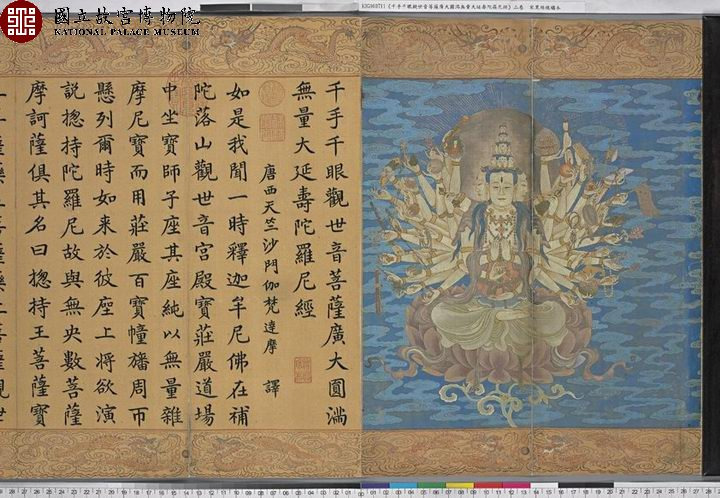 國立故宮博物院
NATIONAL PALACE MUSEUM
千手千眼觀世音菩薩廣大圓滿
無量大延壽陀羅尼經
唐西天竺沙門伽梵達摩 譯
如是我聞一時釋迦牟尼佛在補
陀落山觀世音宮殿寶莊嚴道場
中坐寶師子座其座純以無量雜
摩尼寶而用莊嚴百寶幢旛周帀
懸列爾時如來於彼座上將欲演
說揔持陀羅尼故與無央數菩薩
摩訶薩俱其名曰揔持王菩薩寶